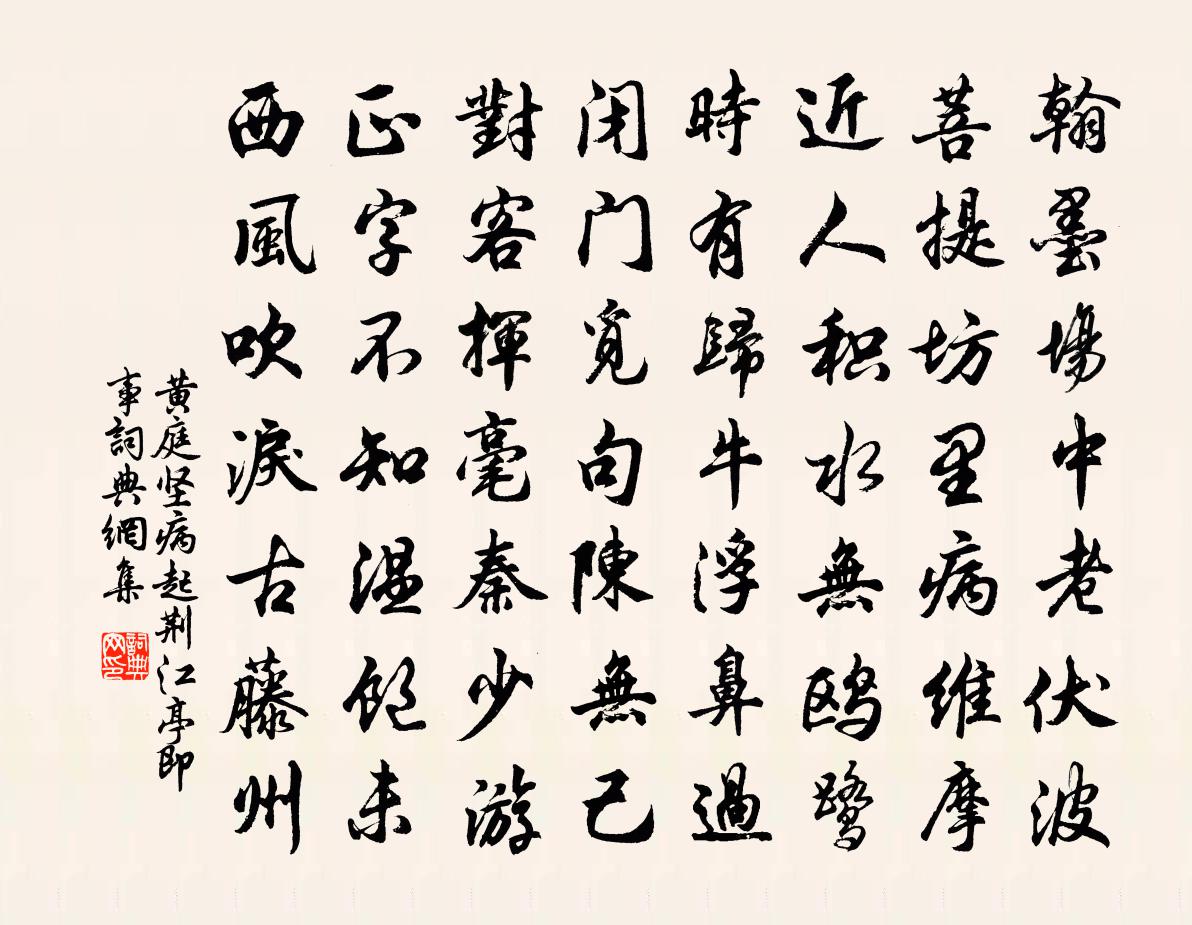 翰墨場中老伏波
菩提坊里病維摩
近人积水無鸥鹭
時有歸牛浮鼻過
闭门觅句陳無己
對客揮毫秦少游
正字不知温飽未
西風吹淚古藤州
黄庭坚病起荆江亭即
事詞典網集
詞典网印